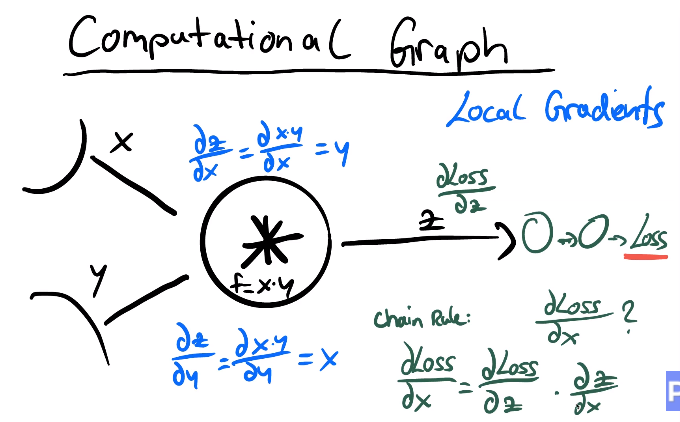 Computational Graph
Local Gradients
x
∂z/∂x = ∂x·y/∂x = y
∂Loss/∂z
z
Loss
y
f=x·y
∂z/∂y = ∂x·y/∂y = x
Chain Rule:
∂Loss/∂x ?
∂Loss/∂x = ∂Loss/∂z · ∂z/∂x
P